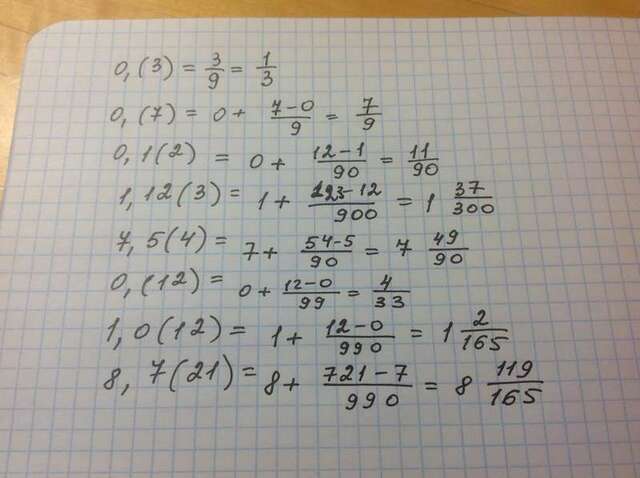 0,(3) = 3/9 = 1/3
0,(7) = 0 + 7-0/9 = 7/9
0,1(2) = 0 + 12-1/90 = 11/90
1,12(3) = 1 + 123-12/900 = 1 37/300
7,5(4) = 7 + 54-5/90 = 7 49/90
0,(12) = 0 + 12-0/99 = 4/33
1,0(12) = 1 + 12-0/990 = 1 2/165
8,7(21) = 8 + 721-7/990 = 8 119/165